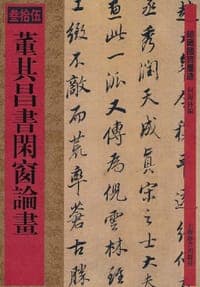 叁拾伍
董其昌書閑窗論畫
丞秀潤天成真宋之士大夫
此一派又傳為倪雲林雖
工緻不敵而荒率蒼古勝